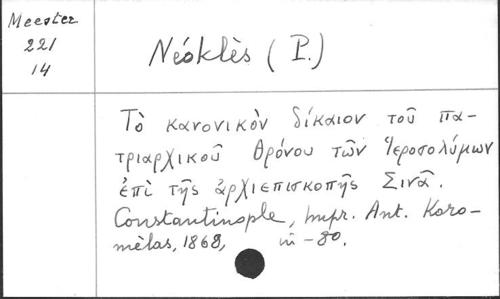 Meester
221
14
Néoklès (P.)
Τὸ κανονικὸν δίκαιον τοῦ πα-
τριαρχικοῦ θρόνου τῶν Ἱεροσολύμων
ἐπὶ τῆς ἀρχιεπισκοπῆς Σινᾶ.
Constantinople, Impr. Ant. Koro-
mèlas, 1868, in-8o.